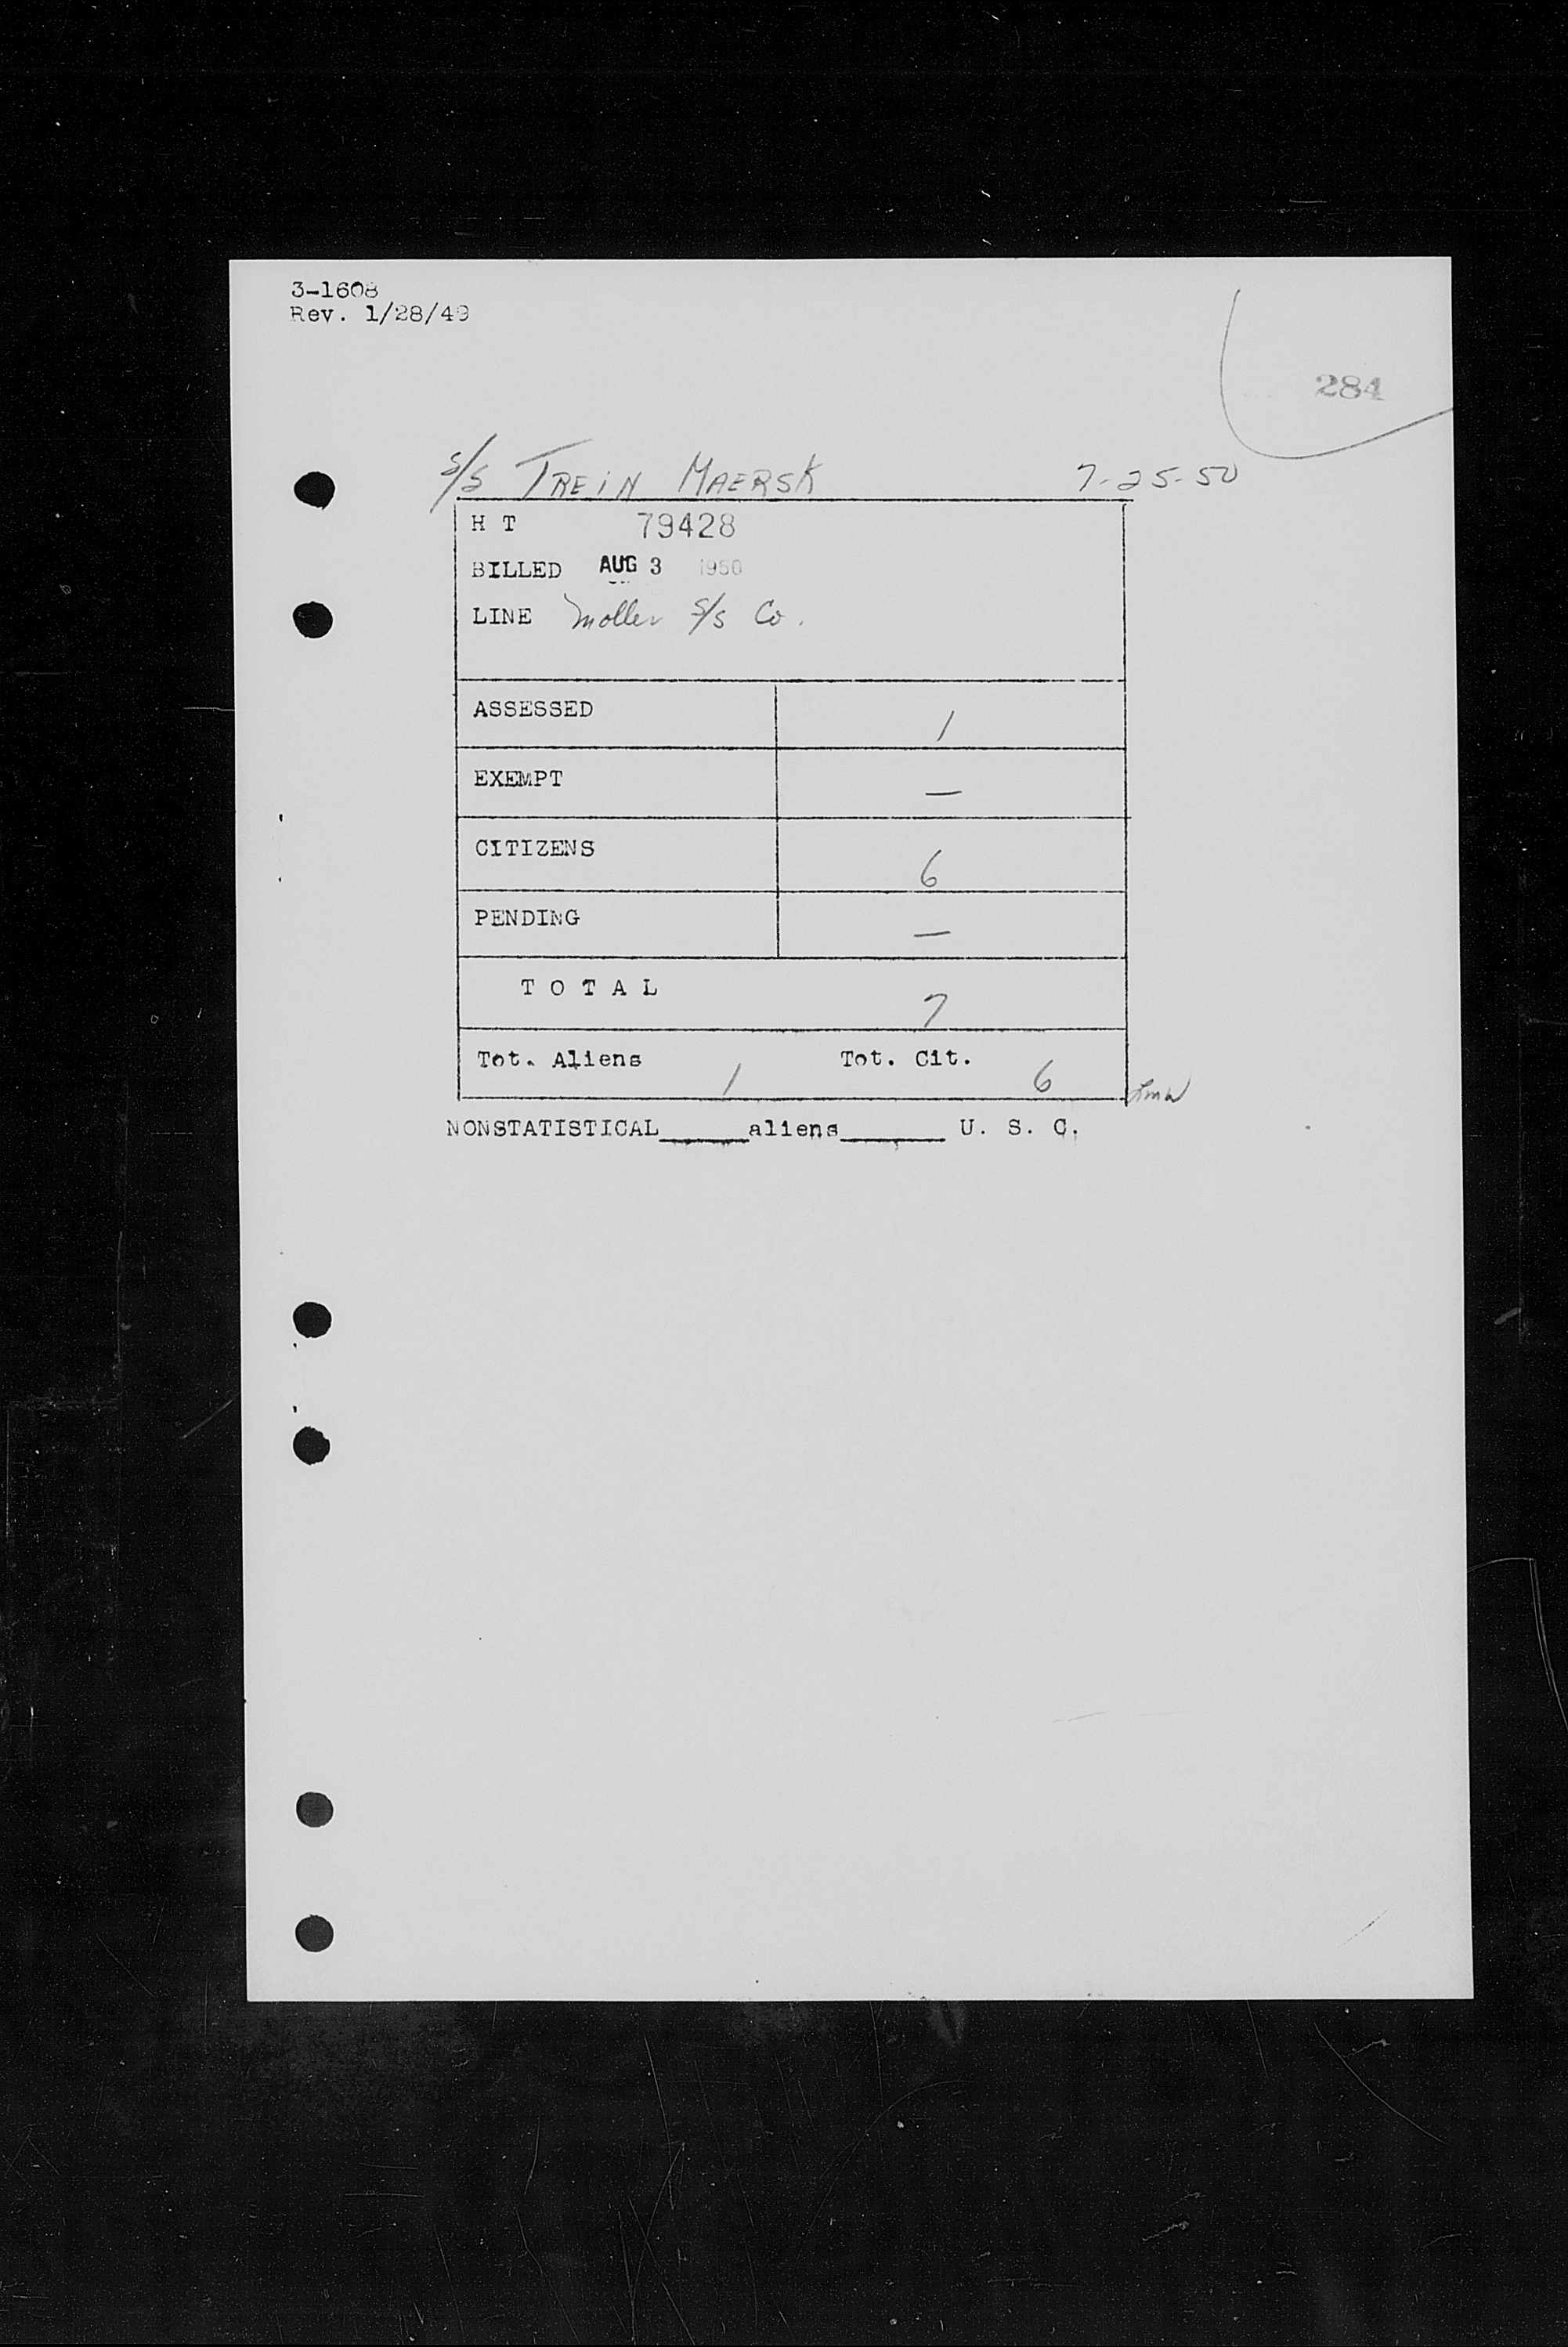 3-1608
Rev. 1/28/49
284
S/S TREIN MAERSK 7-25-50
H T 79428
BILLED AUG 3 1950
LINE Moller S/S Co.
ASSESSED 1
EXEMPT —
CITIZENS 6
PENDING —
T O T A L 7
Tot. Aliens 1 Tot. Cit. 6
NONSTATISTICAL______aliens_______ U. S. C.